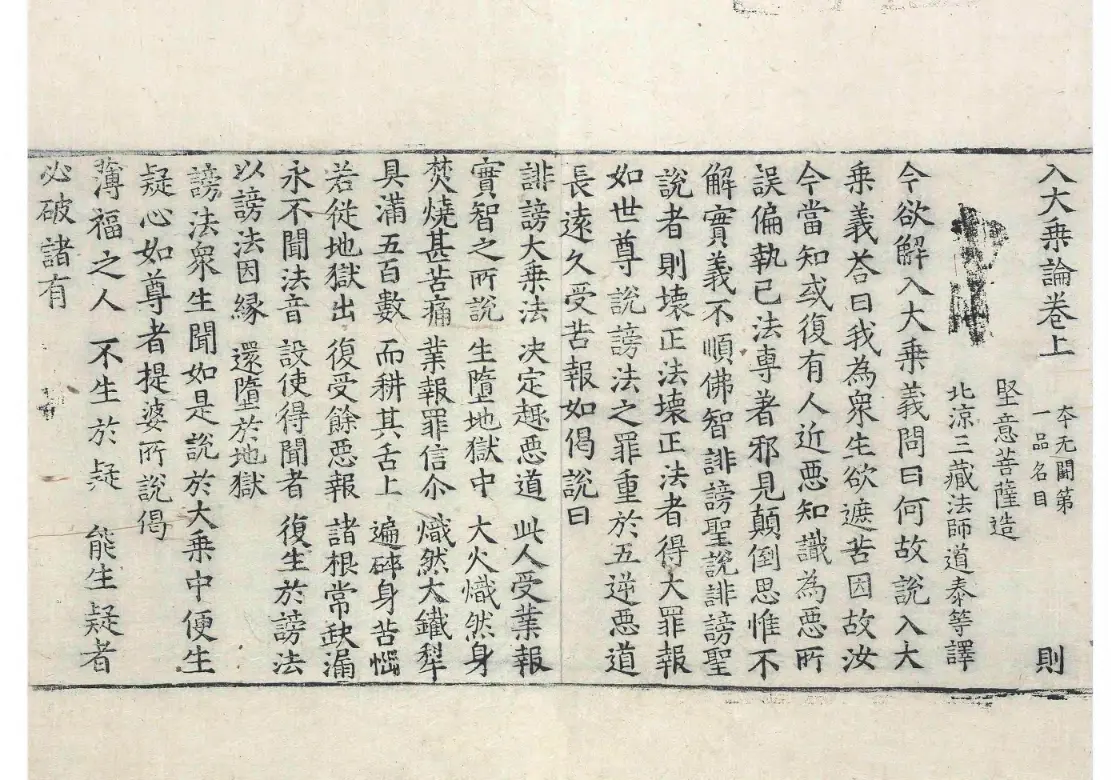 入大乗論卷上 夲无闕第一品名目 則
堅意菩薩造
北涼三藏法師道泰等譯
今欲解入大乗義問曰何故說入大
乗義荅曰我為衆生欲遮苦因故汝
今當知或復有人近惡知識為惡所
誤偏執已法專著邪見顛倒思惟不
解實義不順佛智誹謗聖說誹謗聖
說者則壊正法壊正法者得大罪報
如世尊說謗法之罪重於五逆惡道
長遠久受苦報如偈說曰
誹謗大乗法 决定趣惡道 此人受業報
實智之所說 生墮地獄中 大火熾然身
焚燒甚苦痛 業報罪信尒 熾然大鐵犁
具滿五百數 而耕其舌上 遍碎身苦惱
若從地獄出 復受餘惡報 諸根常缺漏
永不聞法音 設使得聞者 復生於謗法
以謗法因緣 還墮於地獄
謗法衆生聞如是說於大乗中便生
疑心如尊者提婆所說偈
薄福之人 不生於疑 能生疑者
必破諸有